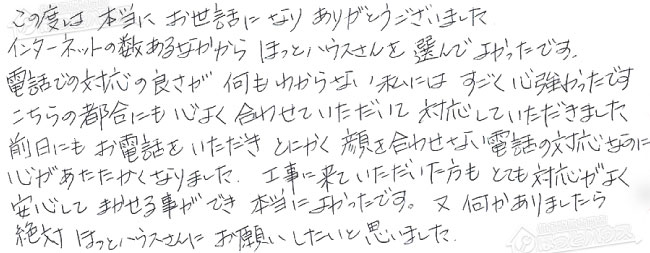 この度は 本当に お世話に なり ありがとうございました
インターネットの数あるなかから ほっとハウスさんを 選んで よかったです.
電話での対応の良さが 何もわからない私には すごく心強かったです
こちらの都合にも 心よく 合わせていただいて 対応していただきました
前日にも お電話をいただき とにかく 顔を合わせない電話の対応なのに
心があたたかくなりました. 工事に来ていただいた方も とても対応がよく
安心して まかせる事ができ 本当によかったです。 又 何かありましたら
絶対 ほっとハウスさんに お願いしたいと思いました.